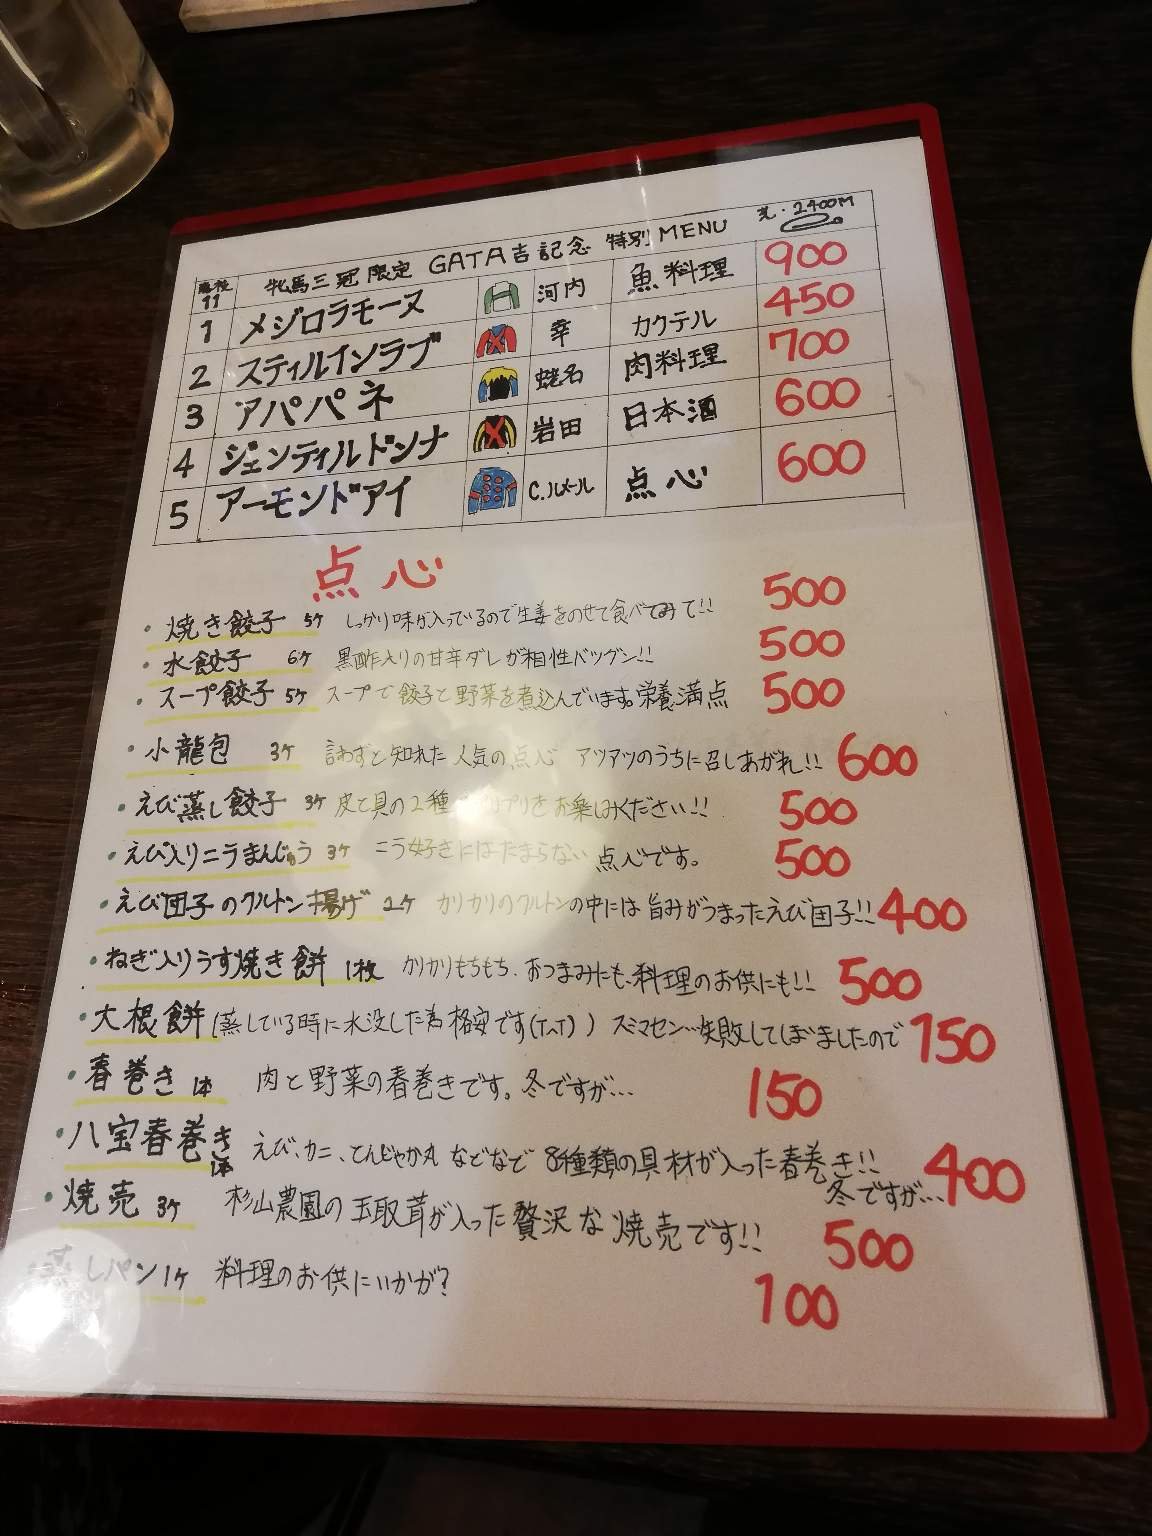 11 牝馬三冠限定 GATA吉記念 特別MENU 芝・2400M
1 メジロラモーヌ 河内 魚料理 900
2 スティルインラブ 幸 カクテル 450
3 アパパネ 蛯名 肉料理 700
4 ジェンティルドンナ 岩田 日本酒 600
5 アーモンドアイ C.ルメール 点心 600
点心
・焼き餃子 5ケ しっかり味が入っているので生姜をのせて食べてみて!! 500
・水餃子 6ケ 黒酢入りの甘辛ダレが相性バツグン!! 500
・スープ餃子 5ケ スープで餃子と野菜を煮込んでいます。栄養満点 500
・小龍包 3ケ 言わずと知れた人気の点心 アツアツのうちに召しあがれ!! 600
・えび蒸し餃子 3ケ 皮と具の2種 プリをお楽しみください!! 500
・えび入りニラまんじゅう 3ケ ニラ好きにはたまらない点心です。 500
・えび団子のクルトン揚げ 2ケ カリカリのクルトンの中には旨みがつまったえび団子!! 400
・ねぎ入りうす焼き餅 1枚 カリカリもちもち、おつまみにも、料理のお供にも!! 500
・大根餅 (蒸している時に水没した為格安です(T^T)) スミマセン…失敗してしまいましたので 150
・春巻き 1本 肉と野菜の春巻きです。冬ですが… 150
・八宝春巻き 1本 えび、カニ、とんじゃが丸などなど8種類の具材が入った春巻き!! 400
冬ですが…
・焼売 3ケ 杉山農園の玉取茸が入った贅沢な焼売です!! 500
蒸しパン 1ケ 料理のお供にいかが? 100